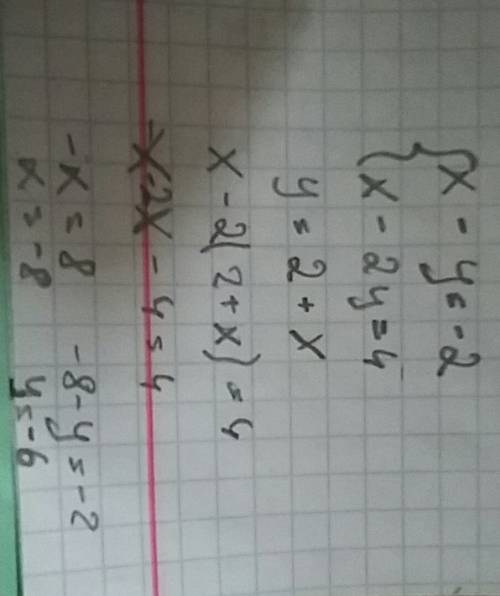 {x - y = -2
{x - 2y = 4
y = 2 + x
x - 2(2 + x) = 4
x - 2x - 4 = 4
-x = 8 -8 - y = -2
x = -8 y = -6